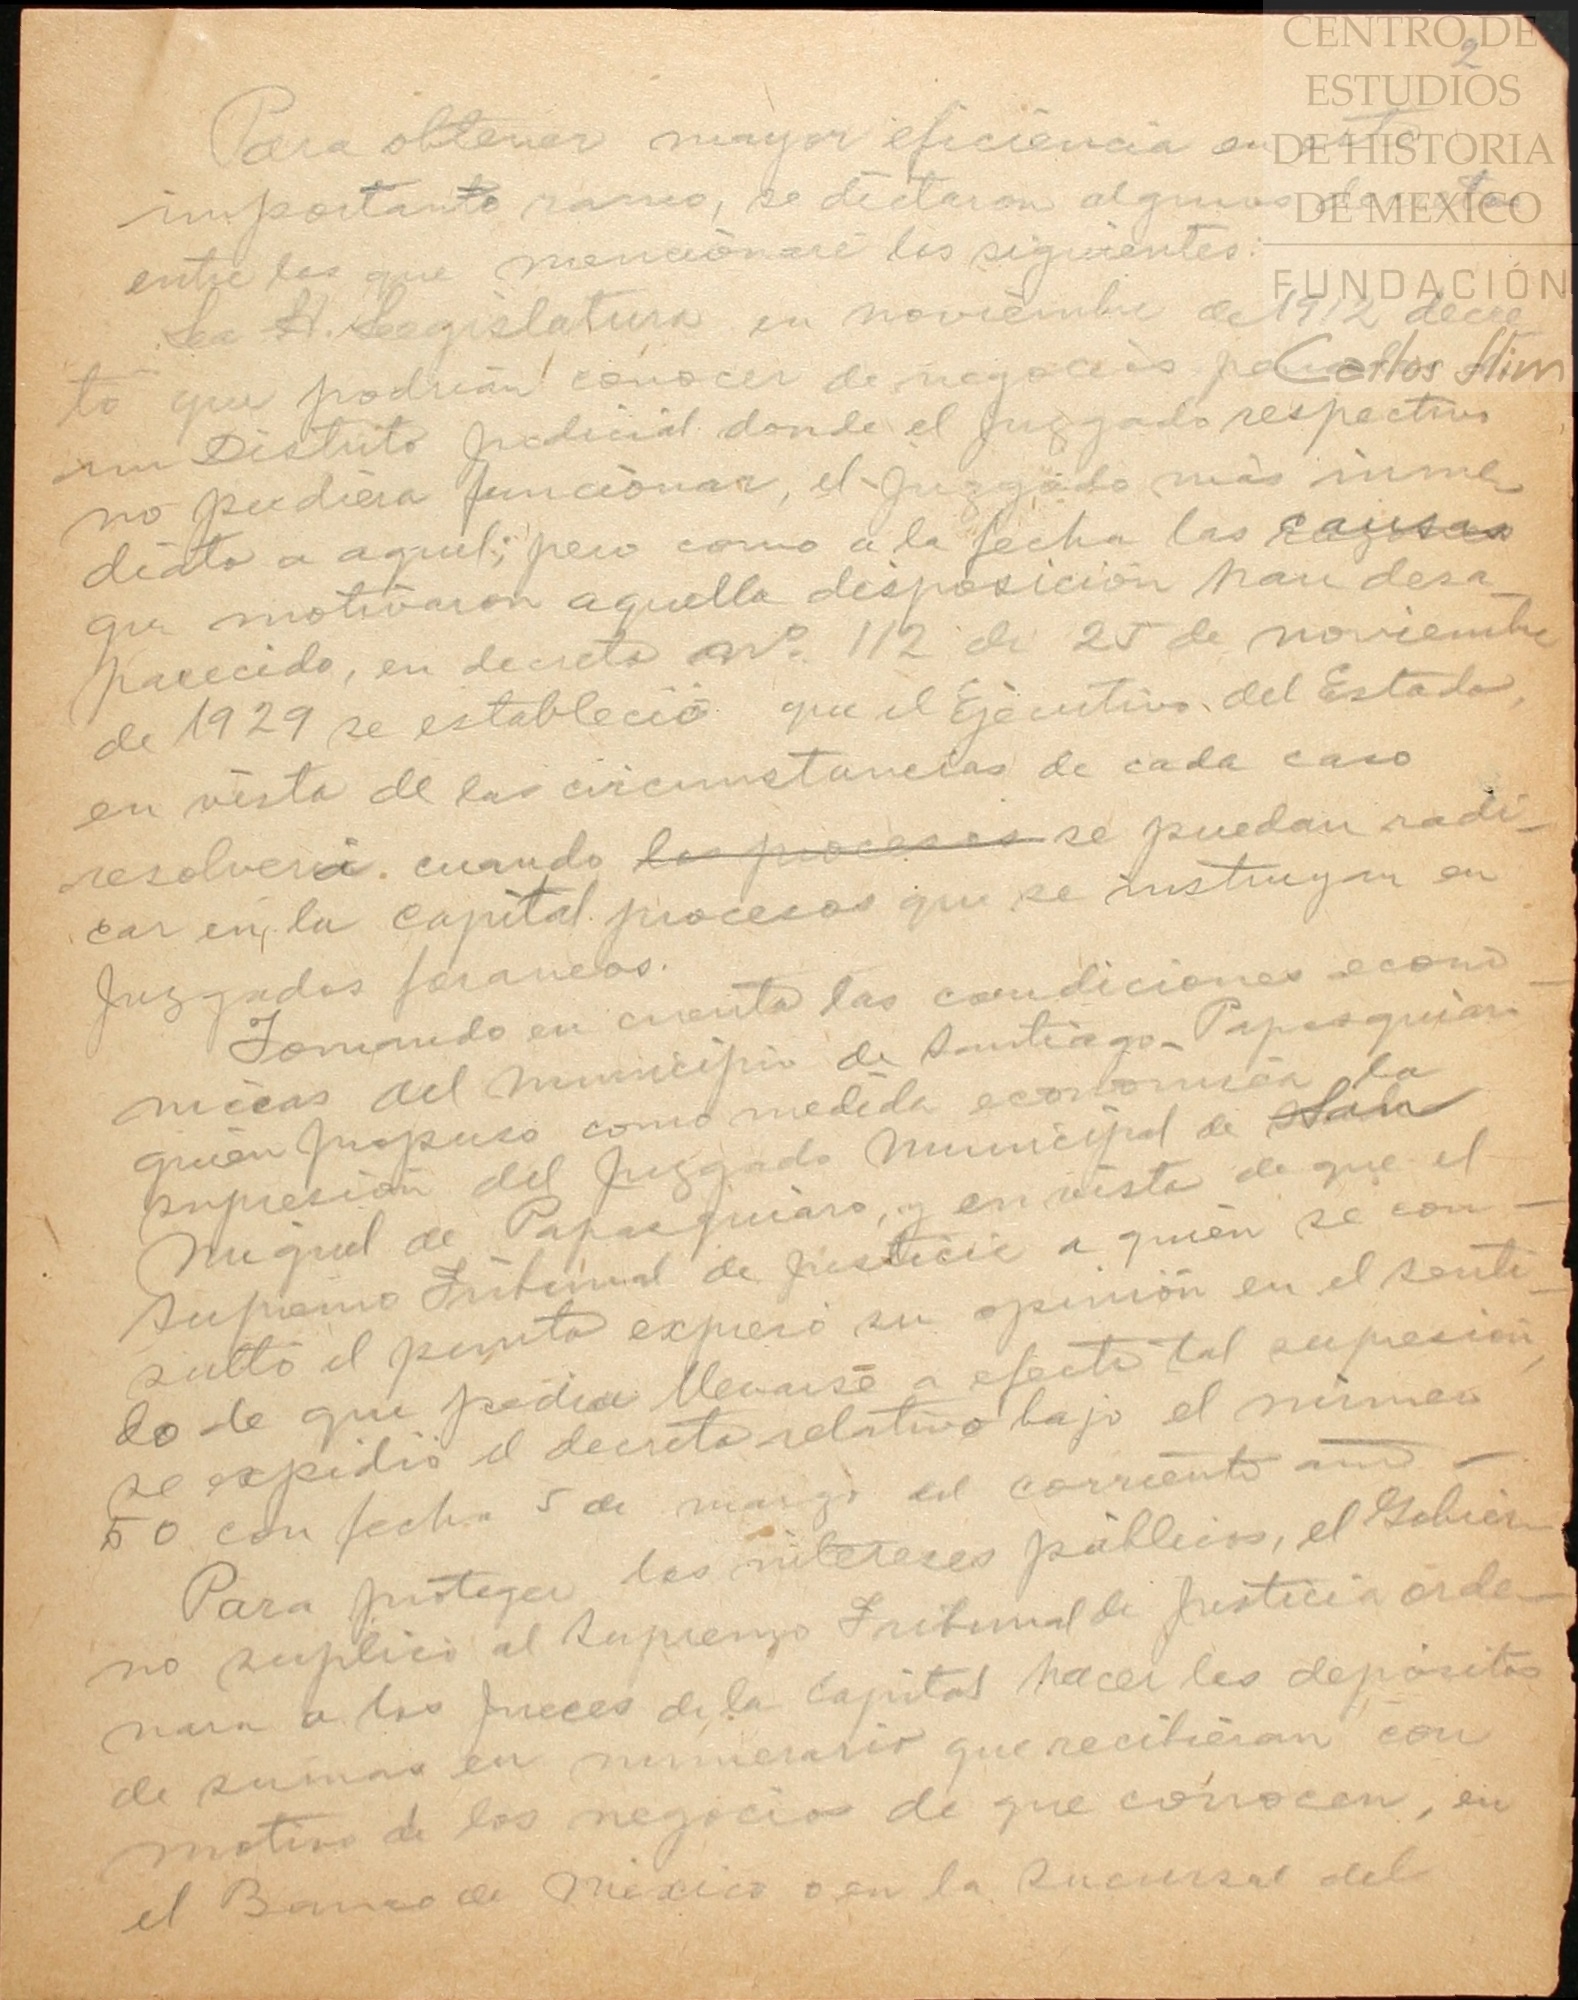 CENTRO DE
ESTUDIOS
DE HISTORIA
DE MEXICO
FUNDACIÓN
Carlos Slim
2
Para obtener mayor eficiencia en este
importante ramo, se dictaron algunos decretos
entre los que mencionaré los siguientes:
La H. Legislatura en noviembre de 1912 decre
tó que podrían conocer de negocios
un Distrito Judicial donde el Juzgado respectivo
no pudiera funcionar, el Juzgado más inme
diato a aquel; pero como a la fecha las causas
que motivaron aquella disposición han desa_
parecido, en decreto nº. 112 de 25 de noviembre
de 1929 se estableció que el Ejecutivo del Estado,
en vista de las circunstancias de cada caso
resolverá cuando los procesos se puedan radi_
car en la capital procesos que se instruyan en
Juzgados foraneos.
Tomando en cuenta las condiciones econó_
micas del Municipio de Santiago Papasquiaro
quien propuso como medida economica la
supresión del Juzgado Municipal de San
Miguel de Papasquiaro, y en vista de que el
Supremo Tribunal de Justicia a quien se con_
sultó el punto expresó su opinión en el senti_
do de que podía llevarse a efecto tal supresión,
se expidió el decreto relativo bajo el número
50 con fecha 5 de marzo del corriente año_
Para proteger los intereses públicos, el Gobier_
no suplicó al Supremo Tribunal de Justicia orde_
nara a los Jueces de la Capital hacer los depósitos
de sumas en numerario que recibieran con
motivo de los negocios de que conocen, en
el Banco de México o en la Sucursal del